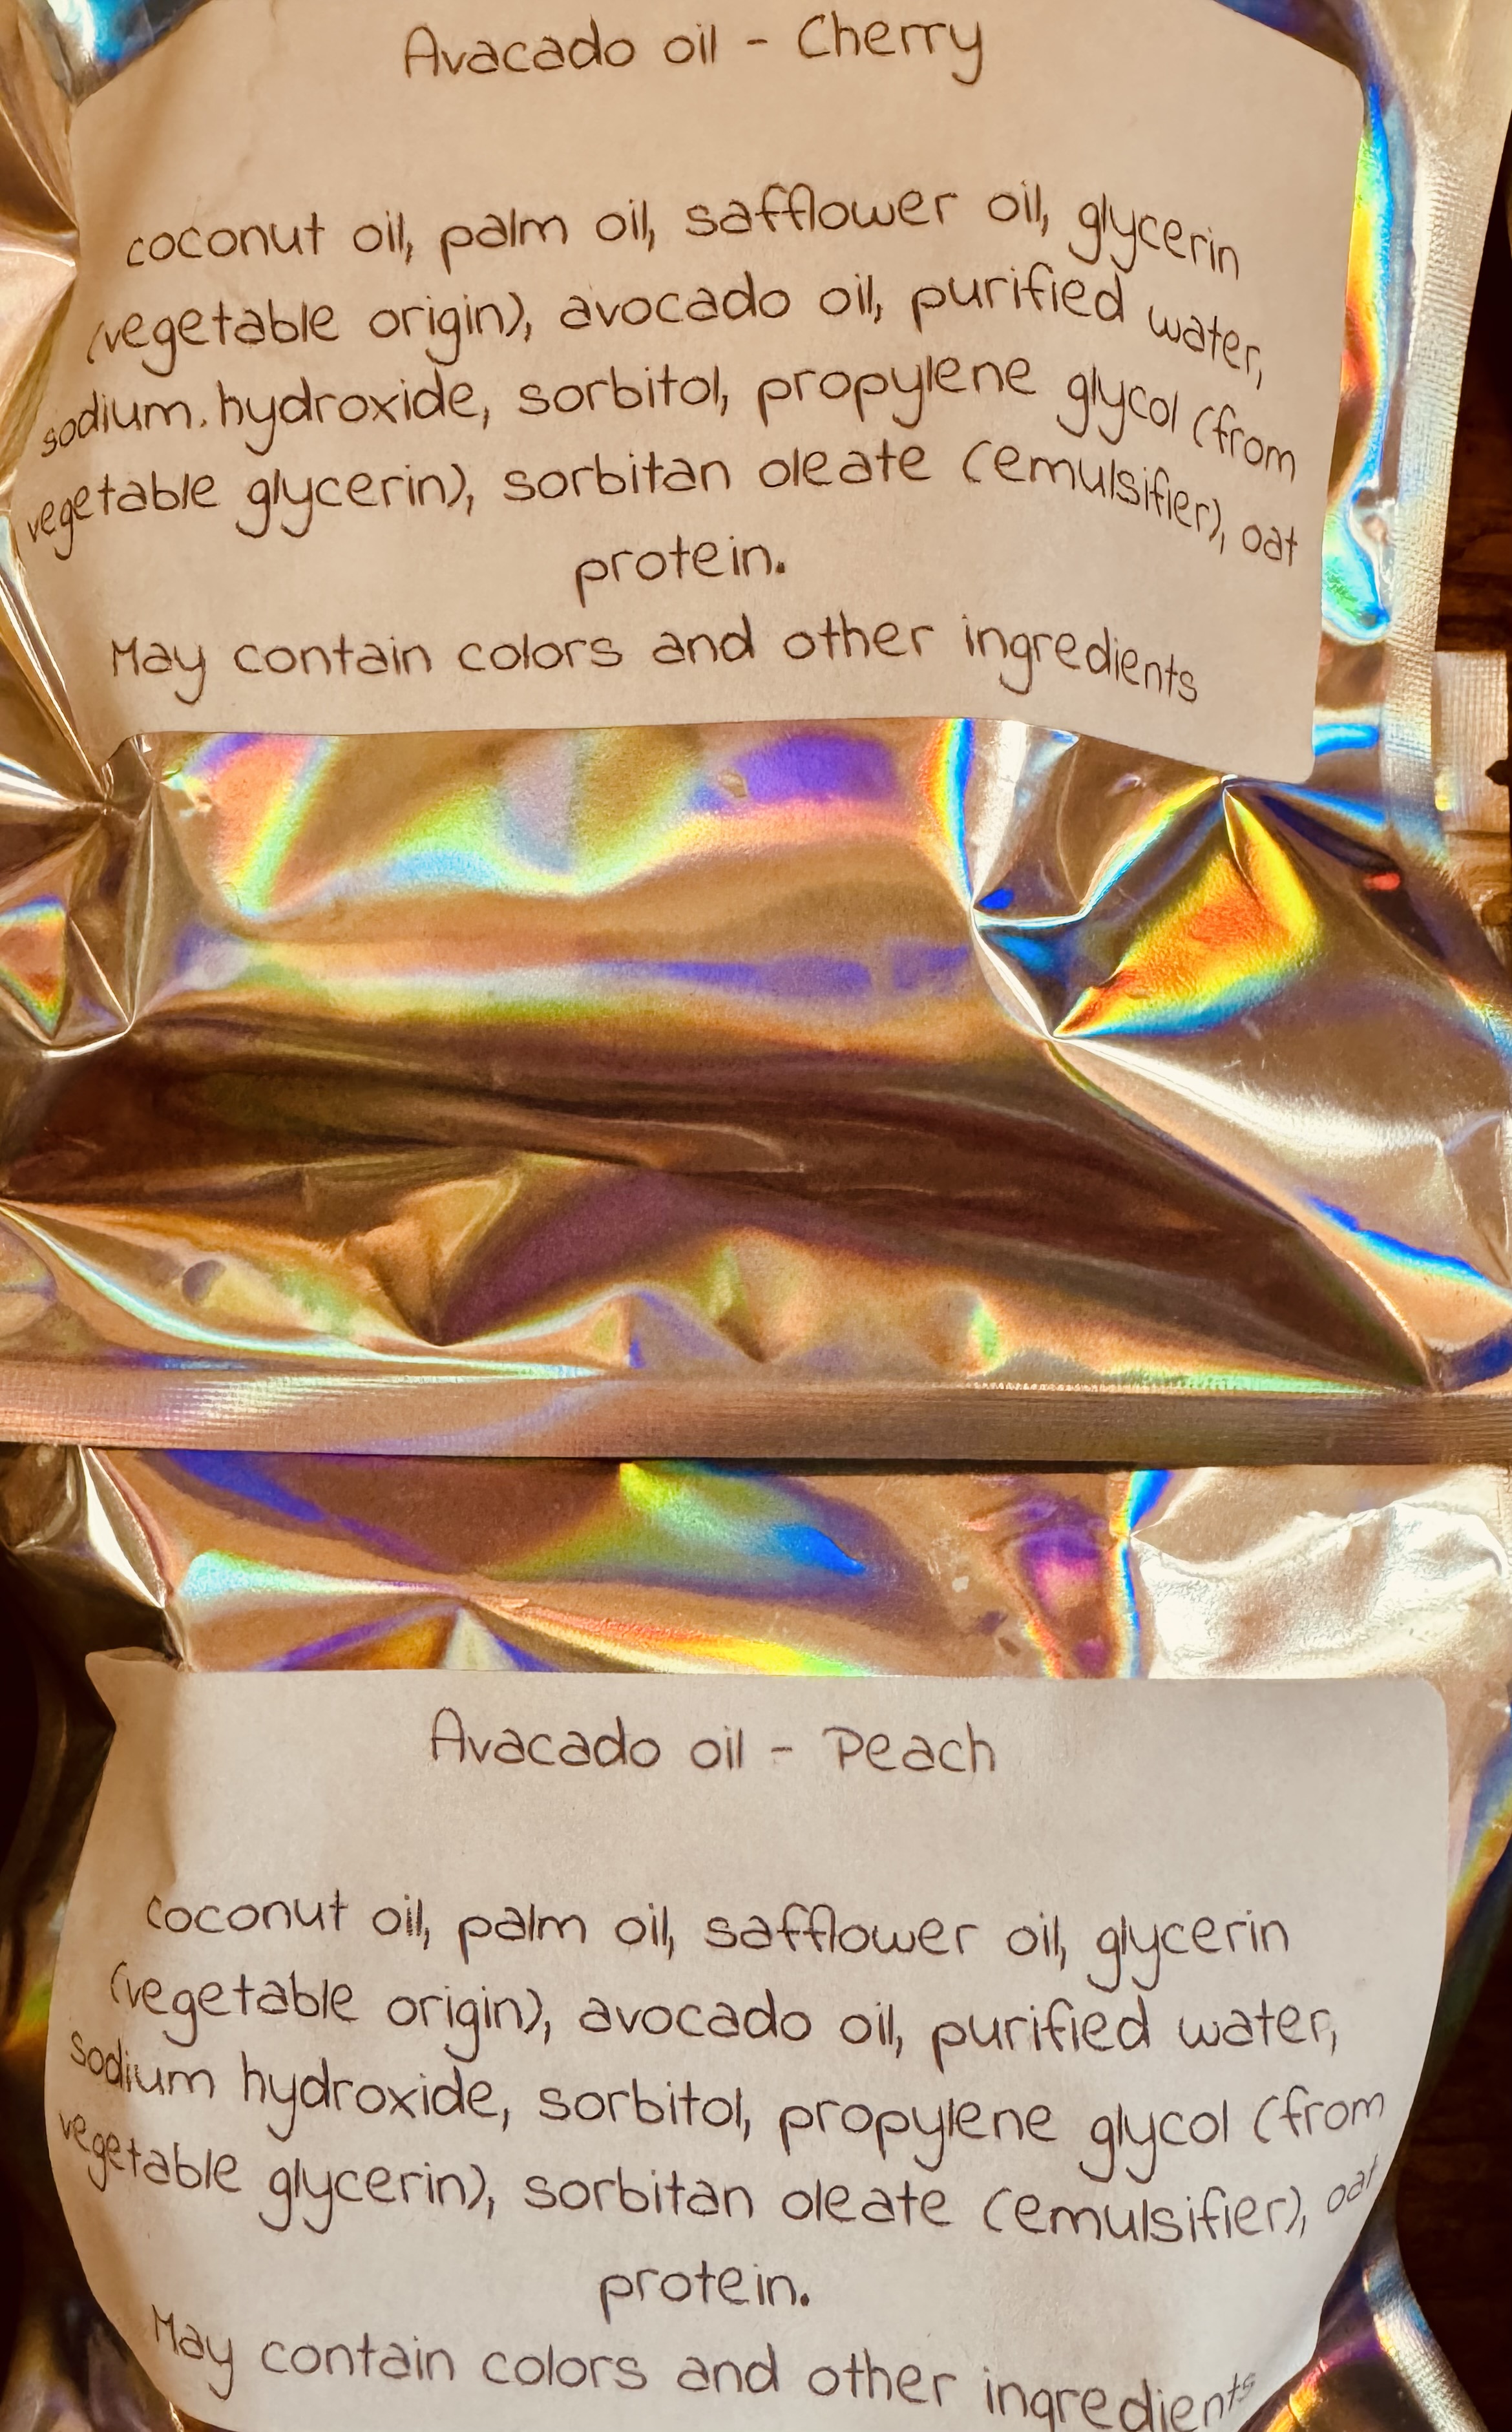 Avacado oil - Cherry
coconut oil, palm oil, safflower oil, glycerin
(vegetable origin), avocado oil, purified water,
sodium hydroxide, sorbitol, propylene glycol (from
vegetable glycerin), sorbitan oleate (emulsifier), oat
protein.
May contain colors and other ingredients
Avacado oil - Peach
coconut oil, palm oil, safflower oil, glycerin
(vegetable origin), avocado oil, purified water,
sodium hydroxide, sorbitol, propylene glycol (from
vegetable glycerin), sorbitan oleate (emulsifier), oat
protein.
May contain colors and other ingredients